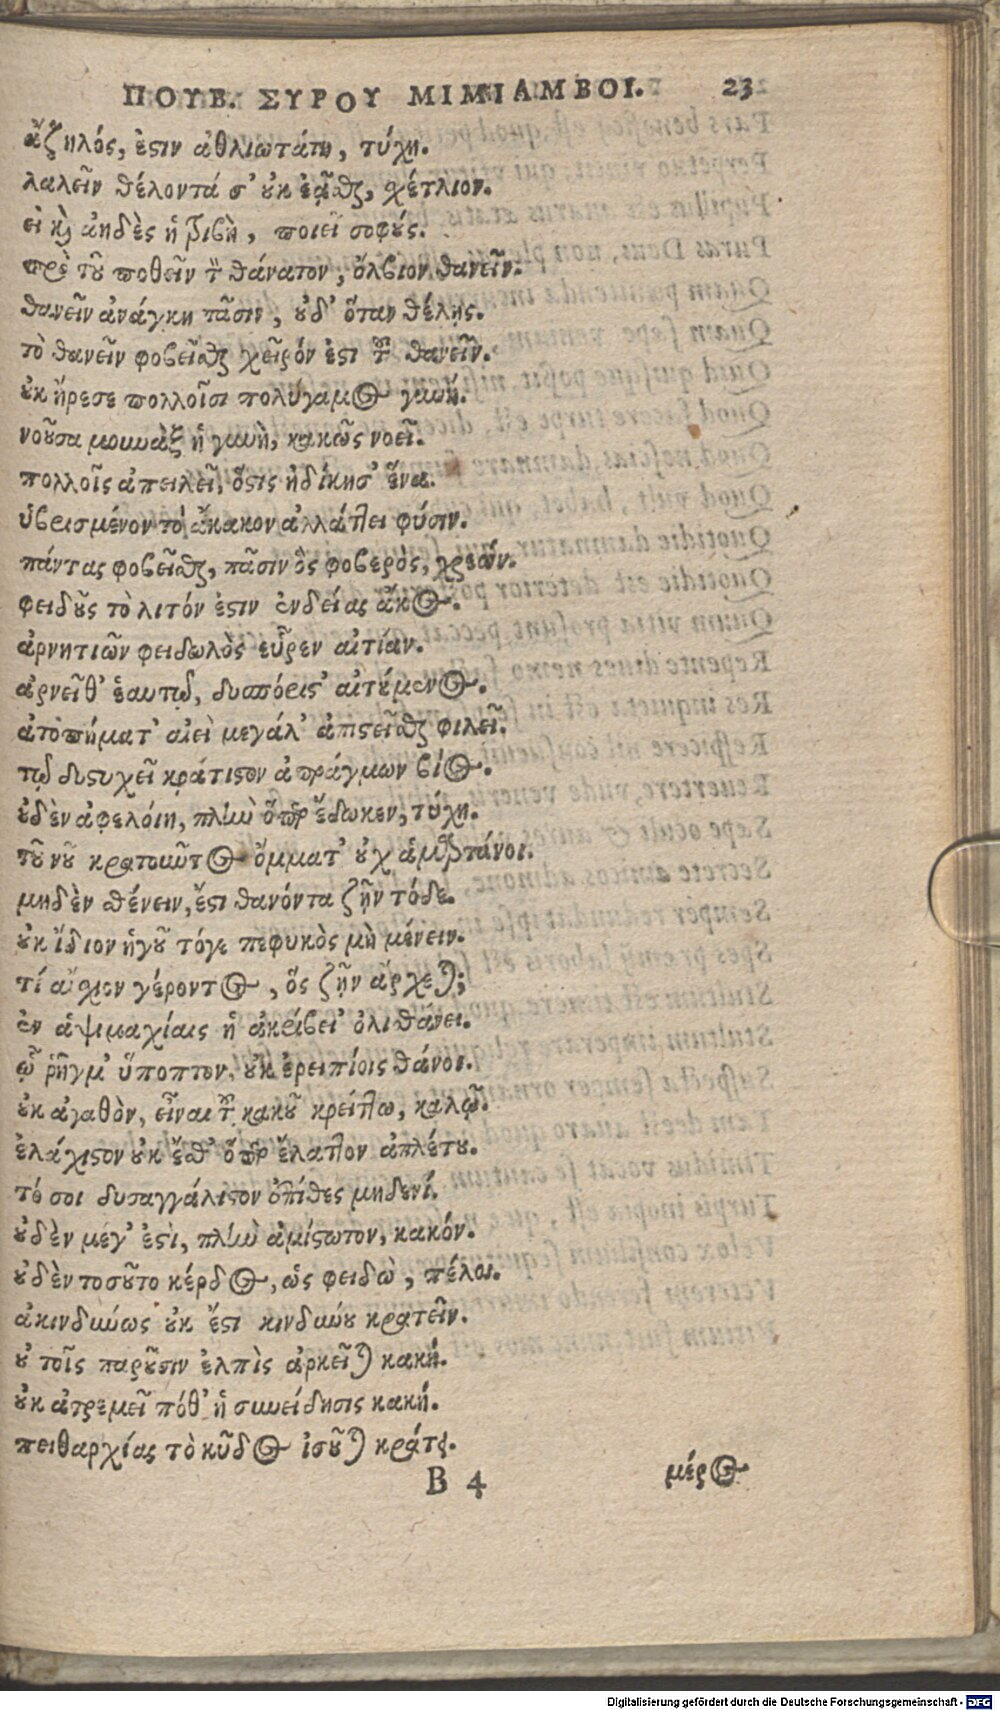 ΠΟΥΒ. ΣΥΡΟΥ ΜΙΜΙΑΜΒΟΙ. 23
ἄζηλός, ἐστιν ἀθλιωτάτη, τύχη.
λαλεῖν θέλοντά σ' οὐκ ἐᾶσθαι, σχέτλιον.
εἰ καὶ ἀηδὲς ἡ τριβὴ, ποιεῖ σοφούς.
πρὸ τοῦ ποθεῖν τὸν θάνατον, ὄλβιον θανεῖν.
θανεῖν ἀνάγκη πᾶσιν, οὐδ' ὅταν θέλῃς.
τὸ θανεῖν φοβεῖσθαι χεῖρόν ἐστι τοῦ θανεῖν.
οὐκ ἤρεσε πολλοῖσι πολύγαμος γυνή.
νοοῦσα μουνὰξ ἡ γυνὴ, κακῶς νοεῖ.
πολλοῖς ἀπειλεῖ, ὅστις ἠδίκησ' ἕνα.
ὑβρισμένον τὸ ἄκακον ἀλλάττει φύσιν.
πάντας φοβεῖσθαι, πᾶσιν ὃς φοβερὸς, χρεών.
φειδοῦς τὸ λιτόν ἐστιν ἐνδείας ἄκος.
ἀρνητιῶν φειδωλὸς εὗρεν αἰτίαν.
ἀρνεῖθ' ἑαυτῷ, δυσπόριστ' αἰτούμενος.
ἀτοπήματ' αἰεὶ μεγάλ' ἀπιστεῖσθαι φιλεῖ.
τῷ δυστυχεῖ κράτιστον ἀπράγμων βίος.
οὐδὲν ἀφελοίη, πλὴν ὅπερ ἔδωκεν, τύχη.
τοῦ νοῦ κρατοῦντος ὄμματ' οὐχ ἁμαρτάνοι.
μηδὲν σθένειν, ἔστι θανόντα ζῆν τόδε.
οὐκ ἴδιον ἡγοῦ τόγε πεφυκὸς μὴ μένειν.
τί αἴσχιον γέροντος, ὃς ζῆν ἄρχεται;
ἐν ἁψιμαχίαις ἡ ἀκρίβει' ὀλισθάνει.
ᾧ ῥῆγμ' ὕποπτον, οὐκ ἐρειπίοις θάνοι.
οὐκ ἀγαθὸν, εἶναι τοῦ κακοῦ κρείττω, καλῶ.
ἐλάχιστον οὐκ ἔσθ' ὅπερ ἔλαττον ἀπλέτου.
τό σοι δυσαγγάλιστον ἐπίθες μηδενί.
οὐδὲν μέγ' ἐστὶ, πλὴν ἀμίσωτον, κακόν.
οὐδὲν τοσοῦτο κέρδος, ὡς φειδὼ, πέλοι.
ἀκινδύνως οὐκ ἔστι κινδύνου κρατεῖν.
οὐ τοῖς παροῦσιν ἐλπὶς ἀρκεῖται κακή.
οὐκ ἀτρεμεῖ πόθ' ἡ συνείδησις κακή.
πειθαρχίας τὸ κῦδος ἰσοῦται κράτει.
B 4 μέρος
Digitalisierung gefördert durch die Deutsche Forschungsgemeinschaft - DFG